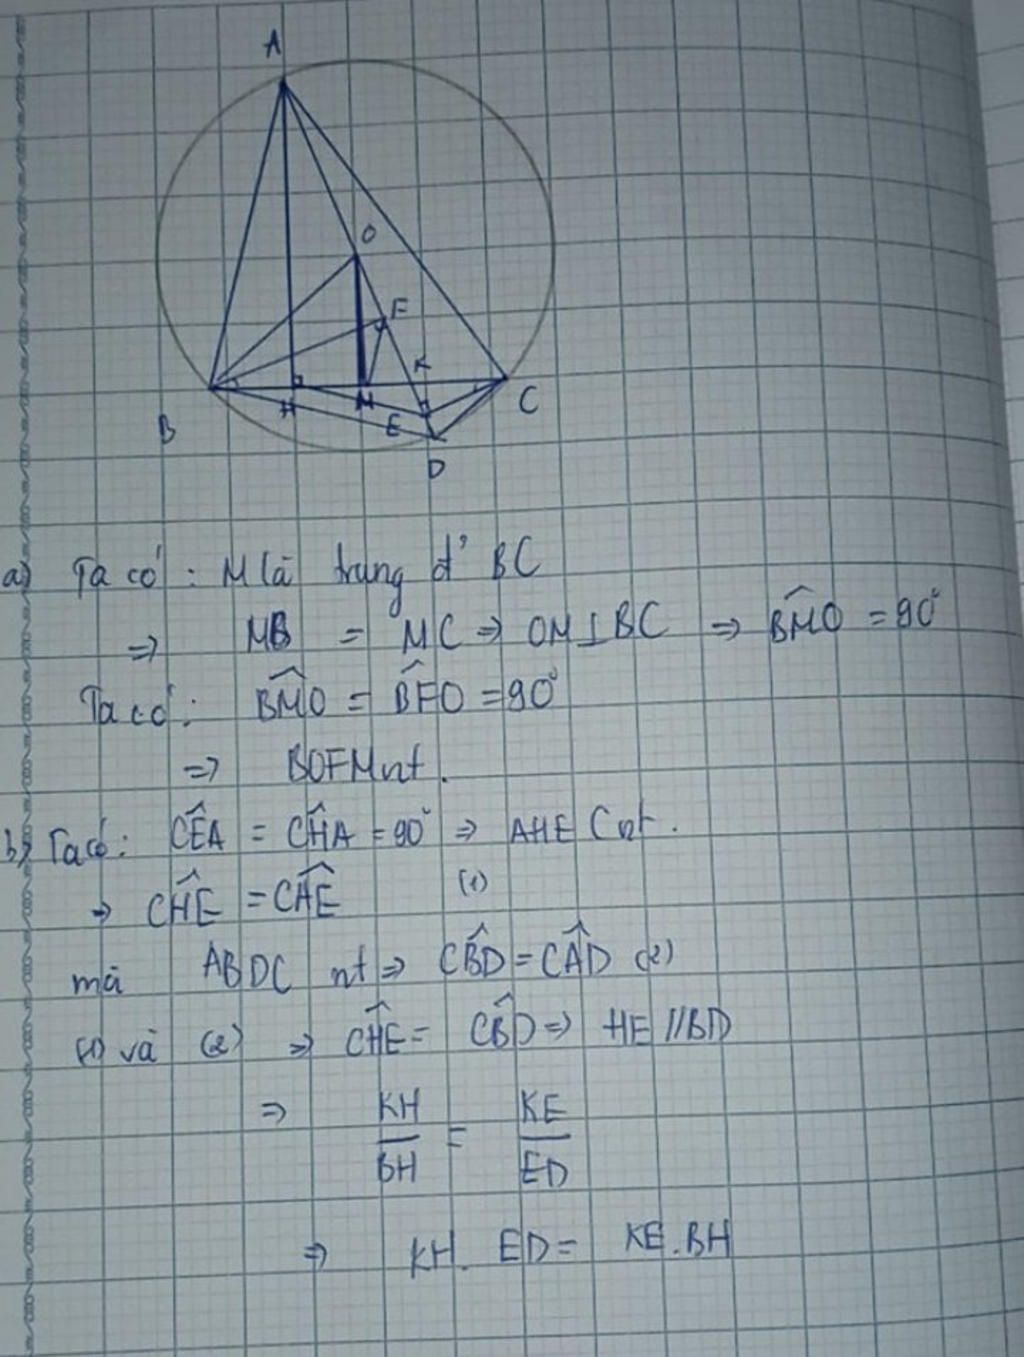 A
O
F
K
B
H
M
E
C
D
a) Ta có : M là trung đ' BC
⇒ MB = MC ⇒ OM ⊥ BC ⇒ \widehat{BMO} = 90°
Ta có : \widehat{BMO} = \widehat{BFO} = 90°
⇒ BOFM nt.
b) Ta có : \widehat{CEA} = \widehat{CHA} = 90° ⇒ AHEC nt.
⇒ \widehat{CHE} = \widehat{CAE} (1)
mà ABDC nt ⇒ \widehat{CBD} = \widehat{CAD} (2)
(1) và (2) ⇒ \widehat{CHE} = \widehat{CBD} ⇒ HE // BD
⇒ KH/BH = KE/ED
⇒ KH. ED = KE.BH